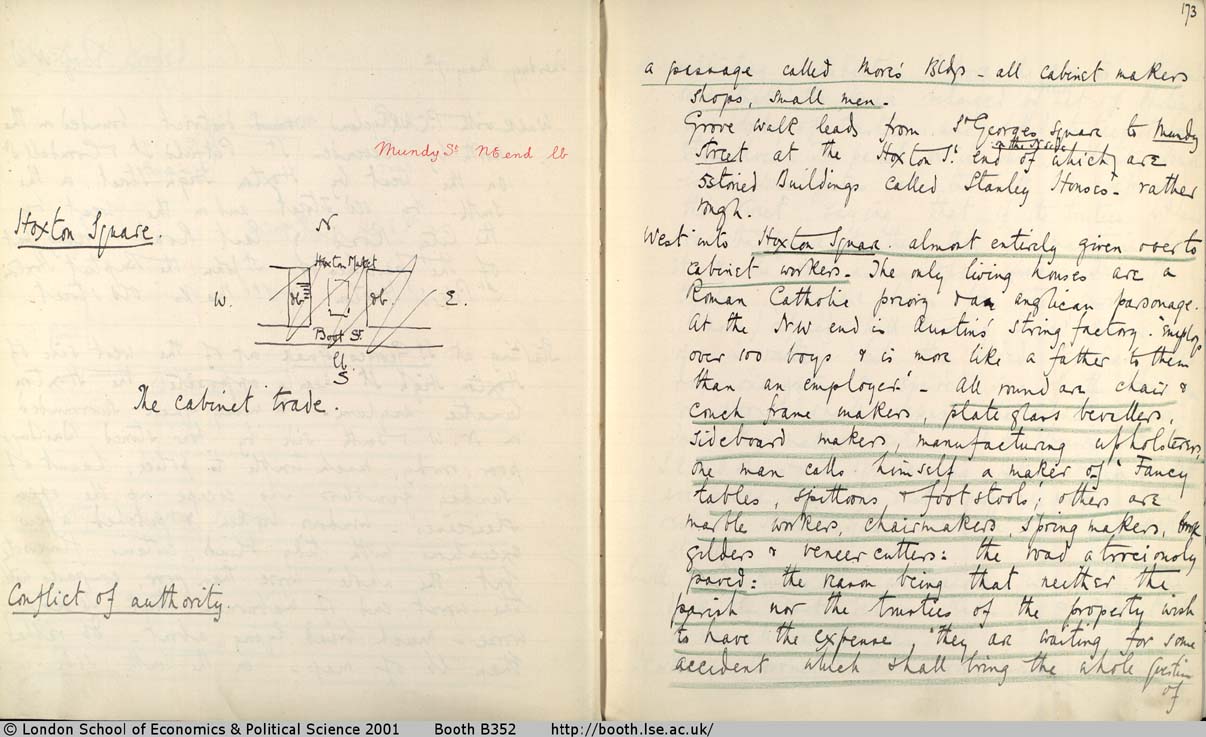 Mundy St NE end lb
Hoxton Square.
N
Hoxton Market
W. db db E.
Boot St.
lb
S.
The cabinet trade.
Conflict of authority.
173
a passage called More's Bldgs - all cabinet makers
shops, small men.
Grove walk leads from St Georges Square to Mundy
on the N side
Street at the Hoxton St end of which are
5 storied Buildings called Stanley Houses - rather
rough.
West into Hoxton Square. almost entirely given over to
cabinet workers. The only living houses are a
Roman Catholic priory & an anglican parsonage.
At the NW end is Austin's string factory. "Employs
over 100 boys & is more like a father to them
than an employer" - All round are chair &
couch frame makers, plate glass bevellers,
sideboard makers, manufacturing upholsterers,
one man calls himself a maker of "Fancy
tables, spittoons & footstools"; others are
marble workers, chairmakers, spring makers,
gilders & veneer cutters: the road atrociously
paved: the reason being that neither the
parish nor the trustees of the property wish
to have the expense, "they are waiting for some
accident which shall bring the whole question
of
© London School of Economics & Political Science 2001 Booth B352 http://booth.lse.ac.uk/